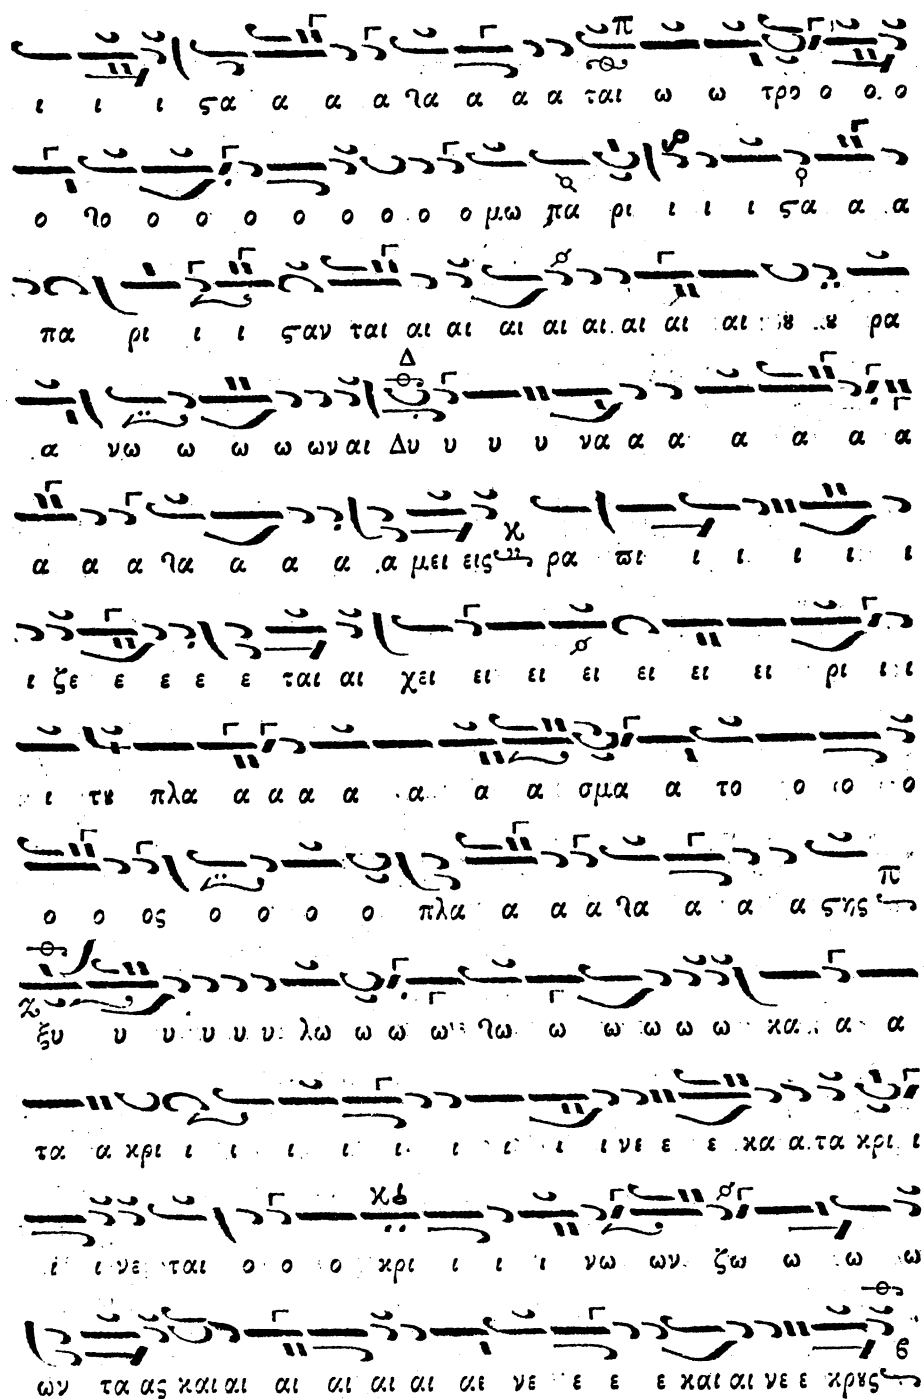 ι ι ι ϛα α α α γα α α α ται ω ω τρο ο ο ο
ο γο ο ο ο ο ο ο ο ο ο μω πα ρι ι ι ι ϛα α α
πα ρι ι ι ϛαν ται αι αι αι αι αι αι αι αι ȣ ȣ ρα
α νω ω ω ω ων αι Δυ υ υ υ να α α α α α α
α α α γα α α α α μει εις ρα ϖι ι ι ι ι ι
ι ζε ε ε ε ε ται αι χει ει ει ει ει ει ει ρι ι ι
ι τȣ πλα α α α α α α α σμα α το ο ο ο
ο ο ος ο ο ο ο πλα α α α γα α α α ϛης
ξυ υ υ υ υ υ λω ω ω ω γω ω ω ω ω ω κα α α
τα α κρι ι ι ι ι ι ι ι ι νε ε ε κα α τα κρι ι
ι ι νε ται ο ο ο κρι ι ι ι νω ων ζω ω ω ω
ων τα ας και αι αι αι αι αι αε νε ε ε ε και αι νε ε κρȣς